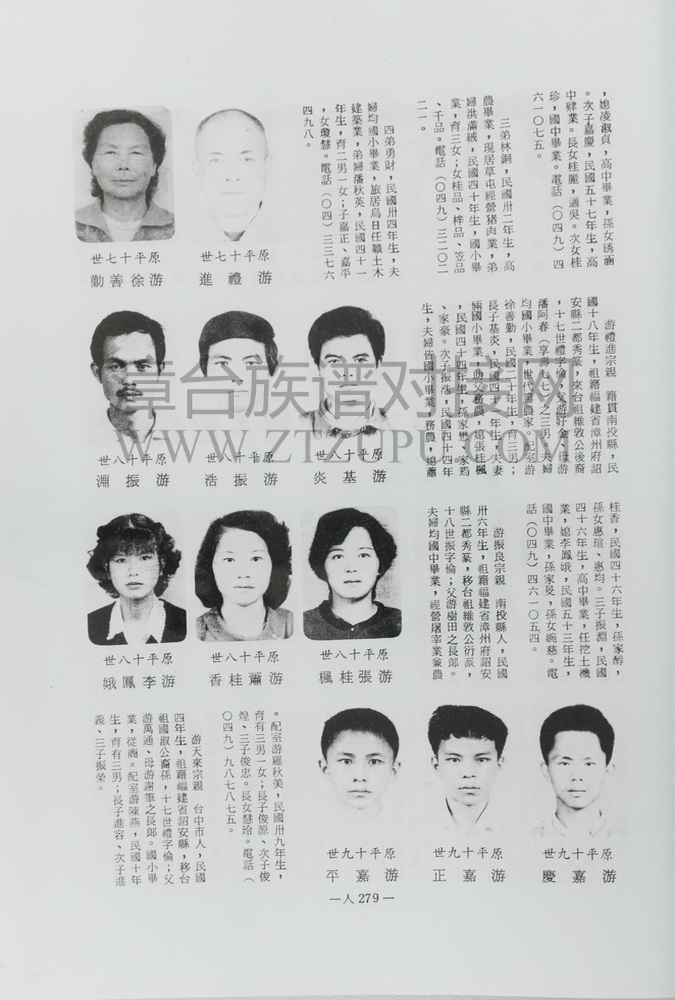 ，媳凌淑貞，高中畢業，孫女琇涵
。次子嘉慶，民國五十七年生，高
中肄業。長女桂麗，適吳。次女桂
珍，國中畢業。電話（〇四九）四
六一〇七五。
三弟林銅，民國卅二年生，高
農畢業，現居草屯經營猪肉業，弟
婦洪滿絨，民國四十年生，國小畢
業，育三女；女桂品、梓品、笠品
、千品。電話（〇四九）三二〇二
二一。
四弟勇財，民國卅四年生，夫
婦均國小畢業，旅居烏日任職土木
建築業，弟婦潘秋英，民國四十一
年生，育二男一女；子嘉正、嘉平
，女瓊慧。電話（〇四）三三七六
四九八。
原平十七世
游禮進
原平十七世
游徐善勤
游禮進宗親　路貫南投縣，民
國十八年生，祖籍福建省漳州府詔
安縣二都秀篆，來台祖維敦公後裔
，十七世禮字倫，父游好金、母游
潘阿春（享壽七七）之三男，夫婦
均國小畢業，世代業農家。配室游
徐善勤，民國二十年生，育三男；
長子基炎，民國四十年生，夫妻
倆國小畢業，助父務農，媳張桂楓
，民國四十四年生，孫家懋、家筠
、家豪。次子振浩，民國四十四年
生，夫婦皆國小畢業，務農，媳蕭
原平十八世
游基炎
原平十八世
游振浩
原平十八世
游振淵
桂香，民國四十六年生，孫家醇，
孫女惠瑄、惠均。三子振淵，民國
四十六年生，高中畢業，任挖土機
業，媳李鳳娥，民國五十三年生，
國中畢業，孫家旻，孫女婉慈。電
話（〇四九）四六一〇五四。
游振良宗親　南投縣人，民國
卅六年生，祖籍福建省漳州府詔安
縣二都秀篆，移台祖維敦公衍派，
十八世振字倫；父游樹田之長郎。
夫婦均國中畢業，經營屠宰業兼農
原平十八世
游張桂楓
原平十八世
游蕭桂香
原平十八世
游李鳳娥
。配室游羅秋美，民國卅九年生，
育有三男一女；長子俊源、次子俊
煌、三子俊忠。長女慧玲。電話（
〇四九）九八七八七五。
游天來宗親　台中市人，民國
四年生，祖籍福建省詔安縣，移台
祖國淑公裔孫，十七世禮字倫；父
游萬通、母游謝筆之長郎。國小畢
業，從商。配室游陳燕，民國十年
生，育有三男；長子進容、次子進
義、三子振榮。
原平十九世
游嘉慶
原平十九世
游嘉正
原平十九世
游嘉平
—人 279—
章台族谱对接网
WWW.ZTZUPU.COM